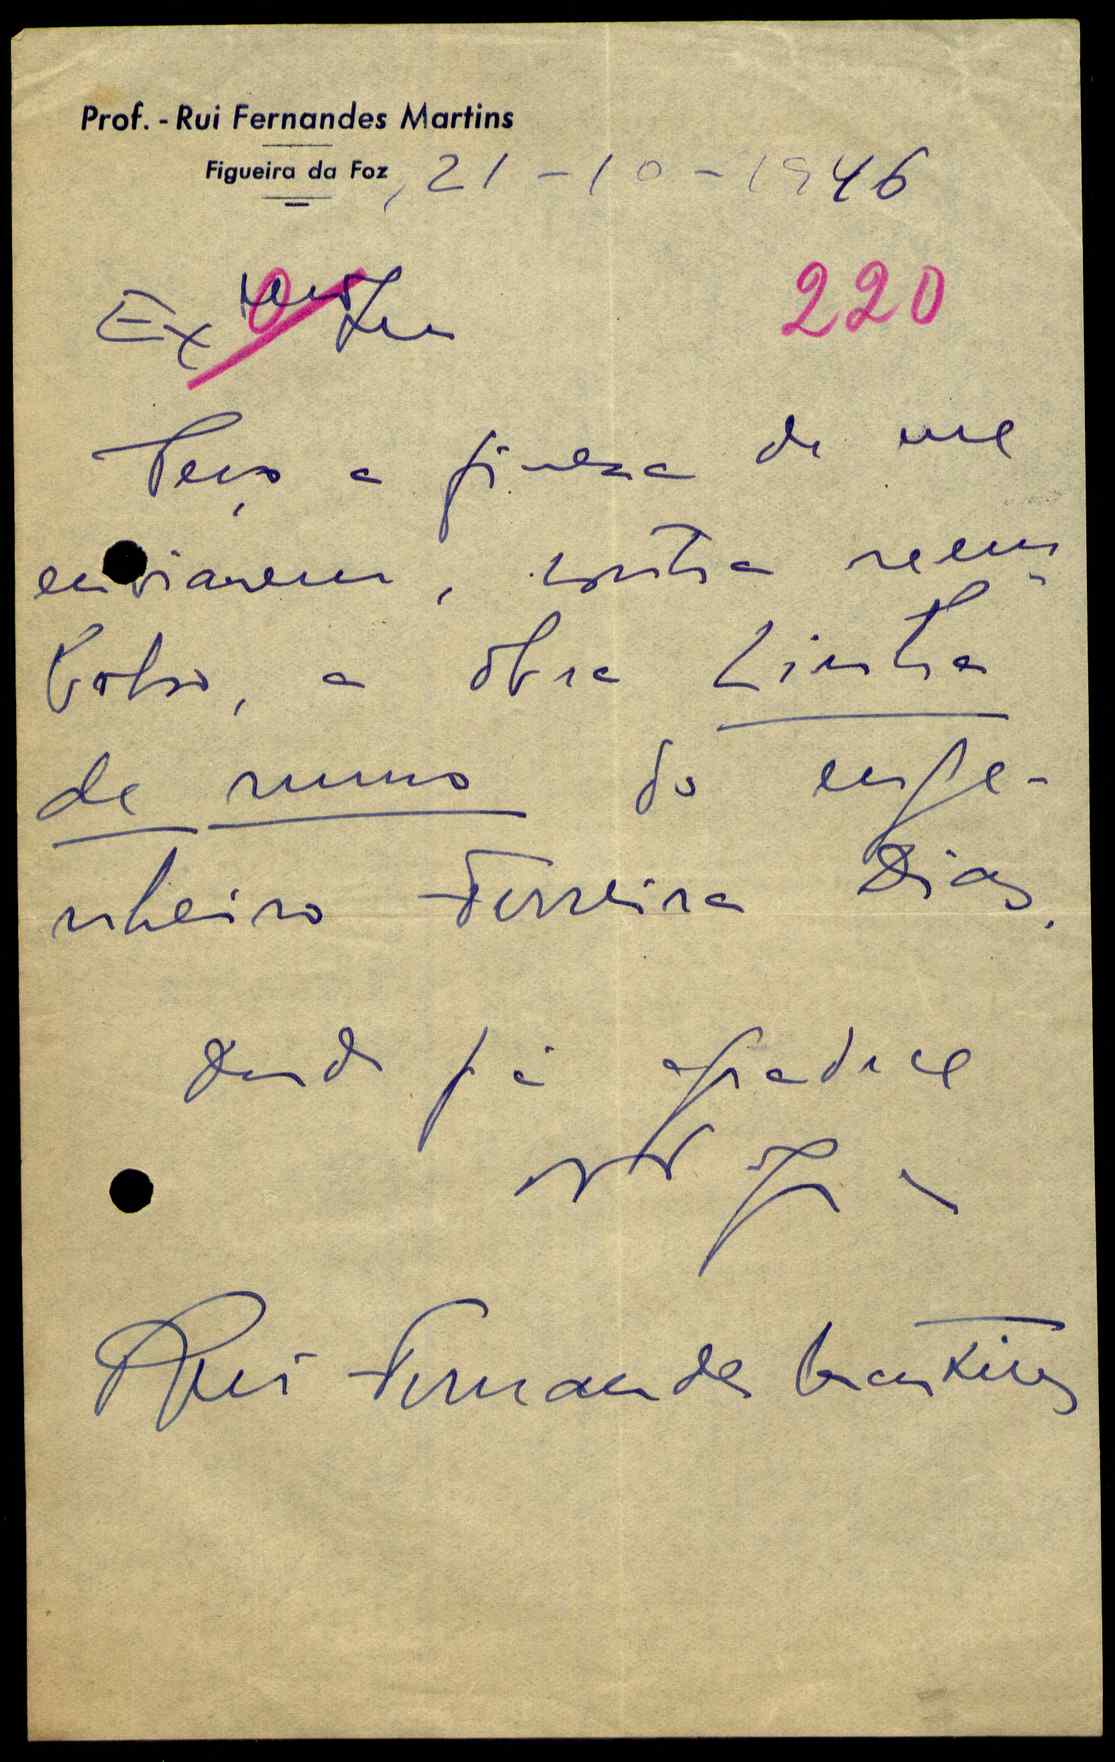 Prof. - Rui Fernandes Martins
Figueira da Foz, 21-10-1946
220
Ex
Peço a fineza de me
enviarem, contra reem-
bolso, a obra Linha
de rumo do enge-
nheiro Ferreira Dias.
Desde já agradece
Rui Fernandes Martins